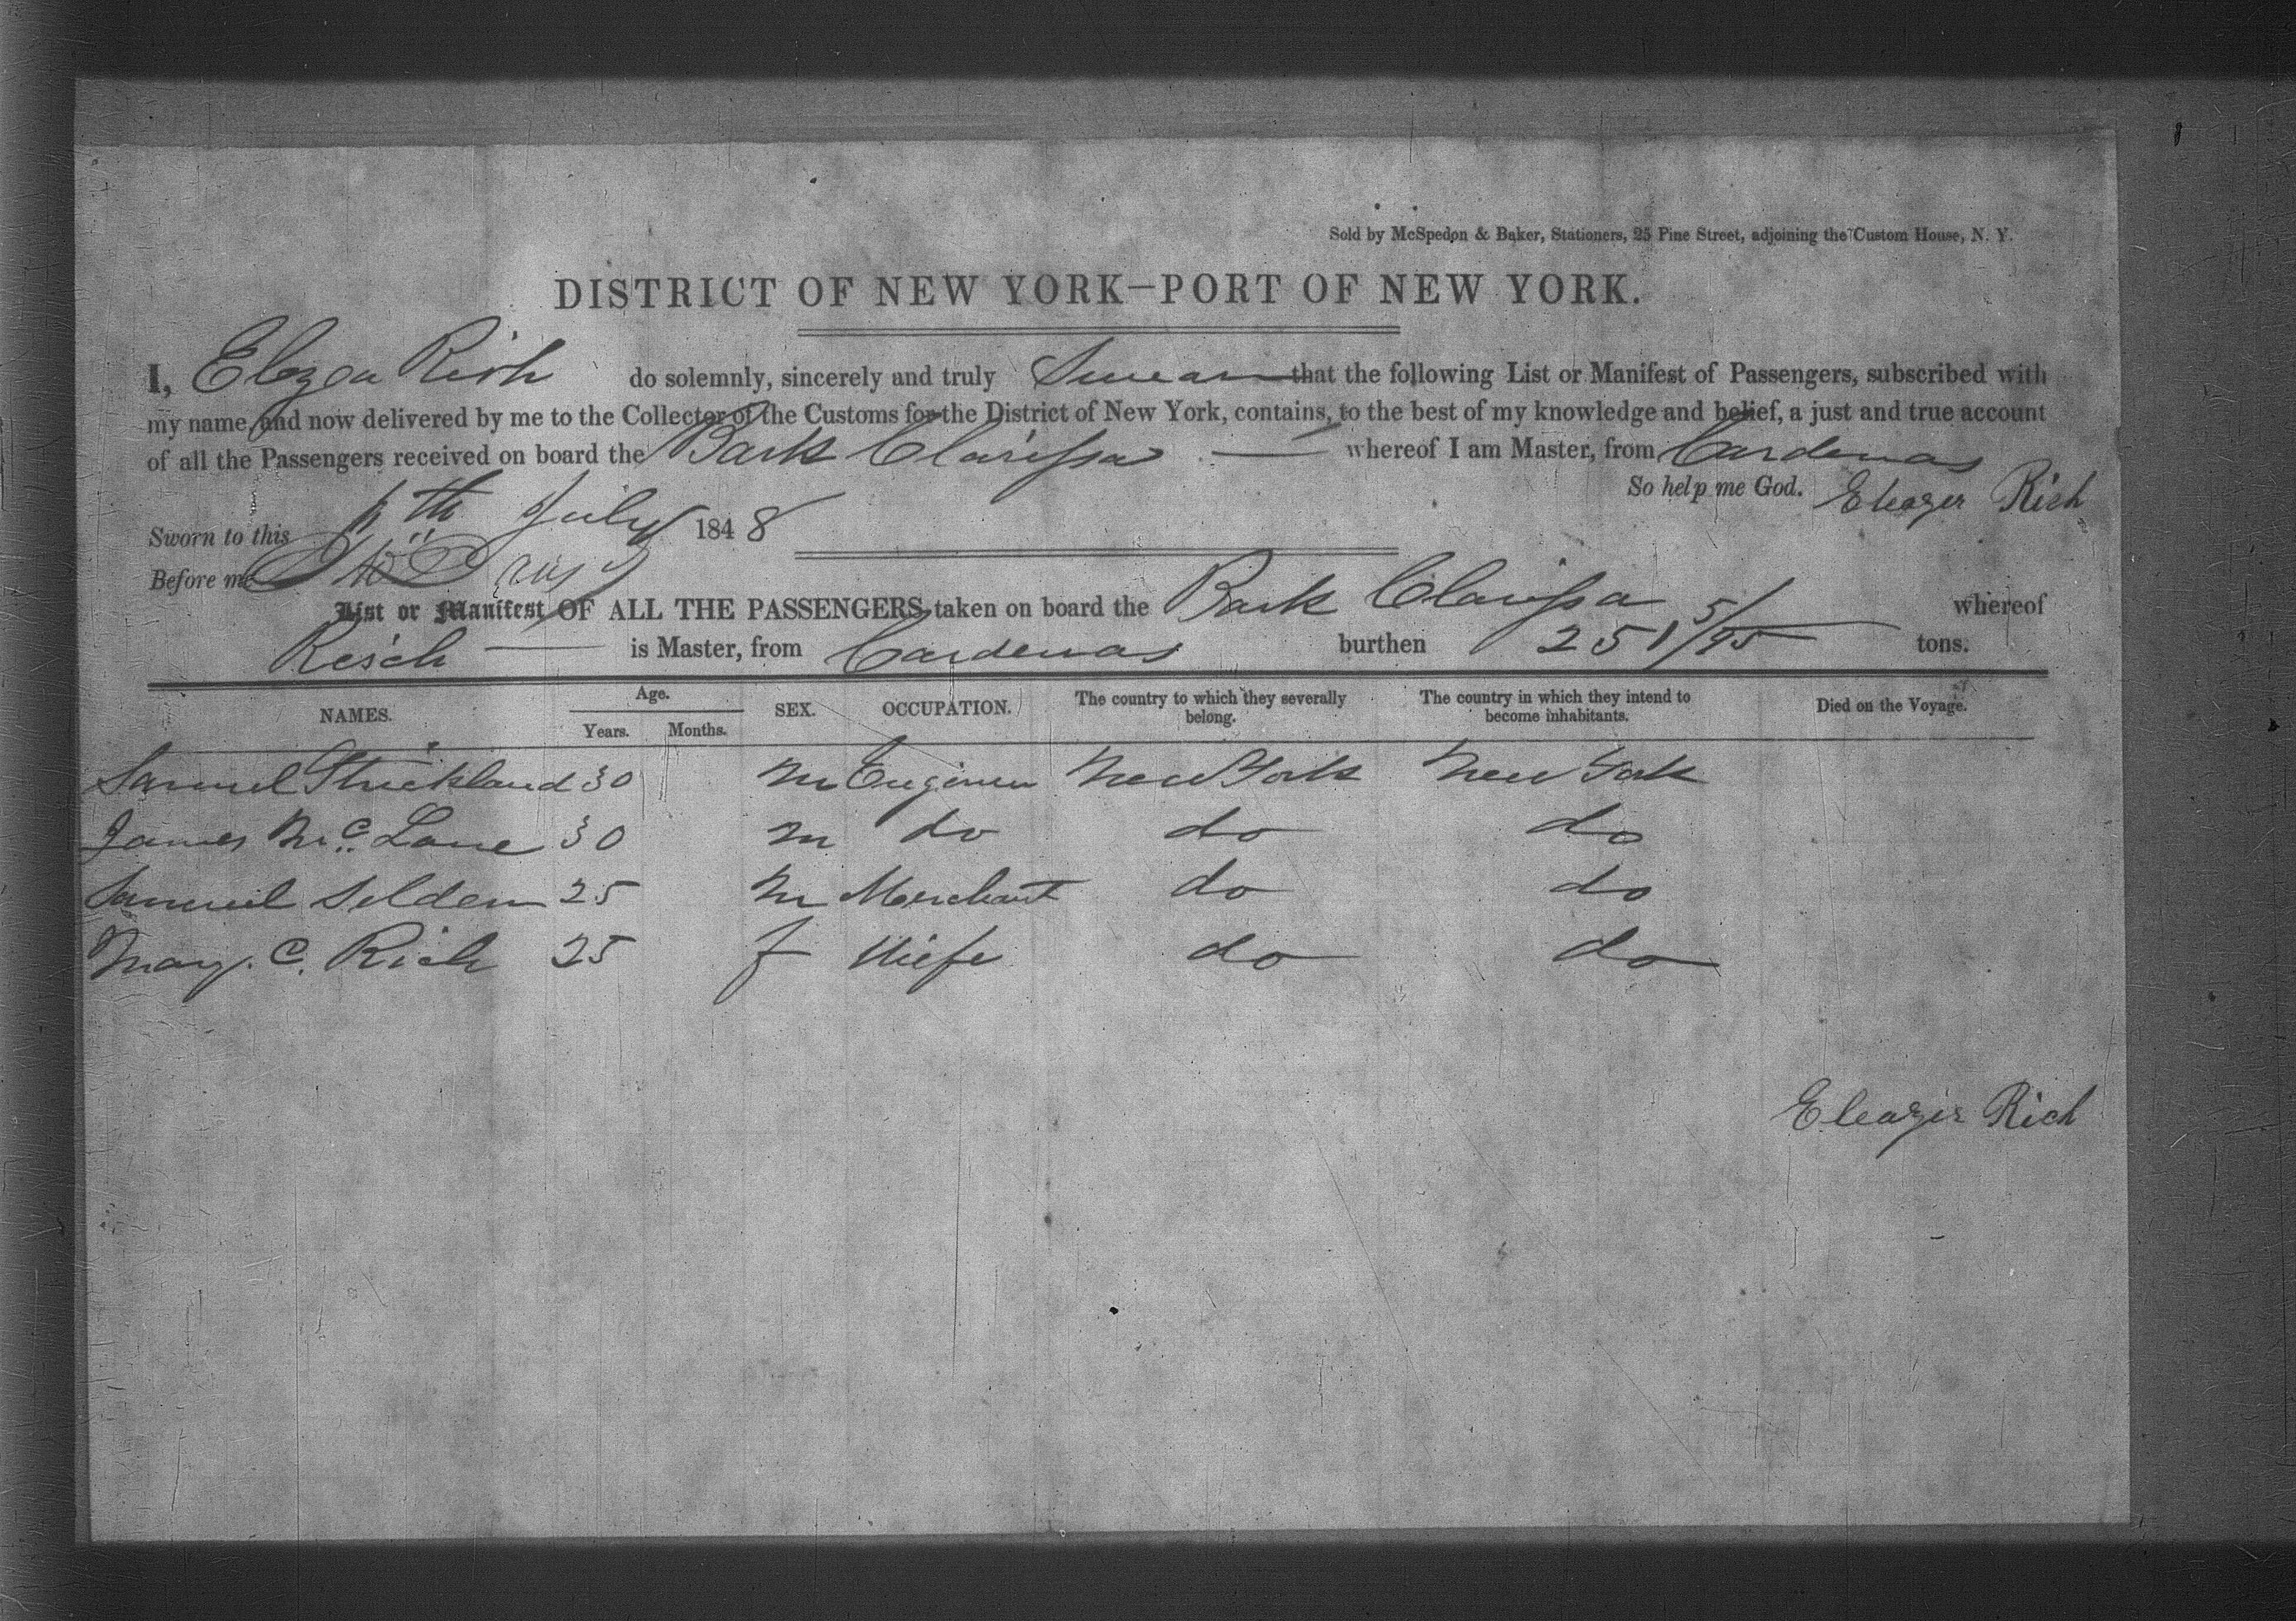 Sold by McSpedon & Baker, Stationers, 25 Pine Street, adjoining the Custom House, N. Y.
DISTRICT OF NEW YORK—PORT OF NEW YORK.
I, Rich do solemnly, sincerely and truly Swear that the following List or Manifest of Passengers, subscribed with
my name, and now delivered by me to the Collector of the Customs for the District of New York, contains, to the best of my knowledge and belief, a just and true account
of all the Passengers received on board the Bark Clarissa — whereof I am Master, from Cardenas
So help me God. Eleazer Rich
Sworn to this th July 1848
Before me
List or Manifest OF ALL THE PASSENGERS taken on board the Bark Clarissa whereof
Rich — is Master, from Cardenas burthen 251 5/95 tons.
NAMES. Age. Years. Months. SEX. OCCUPATION. The country to which they severally belong. The country in which they intend to become inhabitants. Died on the Voyage.
Samuel Strickland 30 M Engineer New York New York
James Mc Lane 30 M do do do
Samuel Selden 25 M Merchant do do
Mary. C. Rich 25 f Wife do do
Eleazer Rich